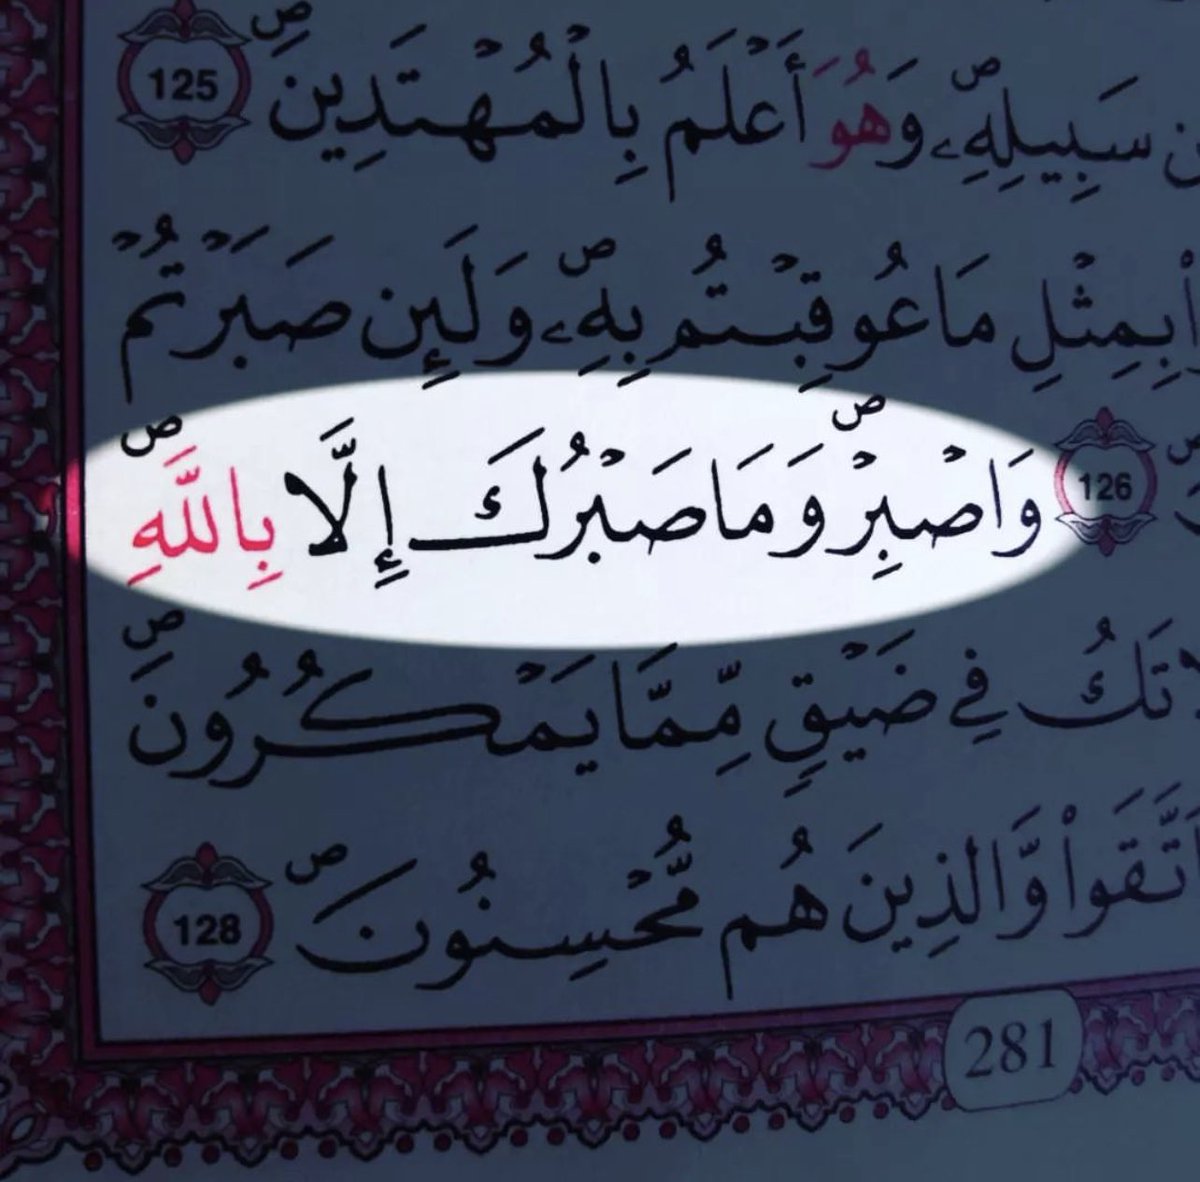 سَبِيلِهِۦ وَهُوَ أَعْلَمُ بِالْمُهْتَدِينَ 125
بِمِثْلِ مَا عُوقِبْتُم بِهِۦ وَلَئِن صَبَرْتُمْ
126 وَاصْبِرْ وَمَا صَبْرُكَ إِلَّا بِاللَّهِ
تَكُ فِي ضَيْقٍ مِّمَّا يَمْكُرُونَ
اتَّقَوا۟ وَّالَّذِينَ هُم مُّحْسِنُونَ 128
281